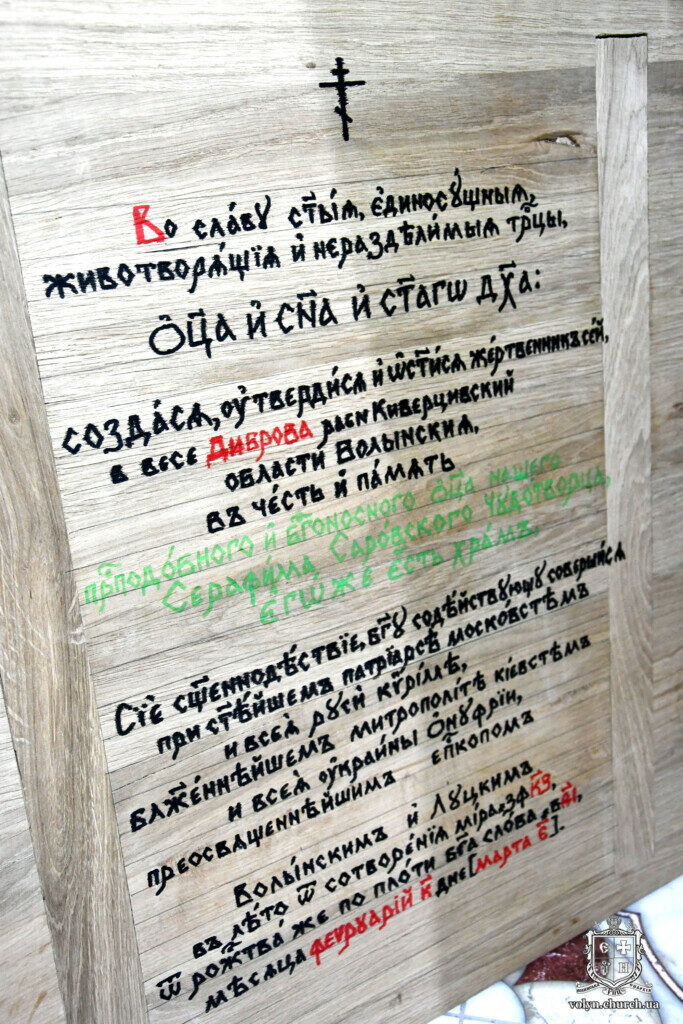 Во сла́ву ст҃ы́ѧ, є҆диносꙋ́щныѧ,
животворѧ́щїѧ и҆ нераздѣли́мыѧ трⷪ҇цы,
Ѻ҆ц҃а̀ и҆ сн҃а и҆ ст҃а́гѡ дх҃а:
созда́сѧ, оу҆тверди́сѧ и҆ ѡ҆ст҃и́сѧ же́ртвенникъ се́й,
в весе Диброва раен Киверцивский
области Волынскиѧ,
въ че́сть и҆ па́мѧть
прп҃одо́бного и҆ бг҃оносного ѻ҆ц҃а̀ нашего
Серафи́ма Саро́вского чꙋдотво́рца,
є҆гѡ́ же є҆́сть хра́мъ.
Сїѐ сщ҃еннодѣ́йствїе, бг҃ꙋ содѣ́йствꙋющꙋ соверши́сѧ
при ст҃ѣ́йшемъ патрїа́рсѣ моско́встѣмъ
и всеѧ̀ рꙋси́ кѷрі́ллѣ,
блаже́ннѣйшемъ митрополі́тѣ кі́евстѣмъ
и всеѧ̀ оу҆краи́ны Ѻ҆нꙋ́фрїи,
преосвѧщеннѣ́йшимъ єп҃копомъ
Волы́нскимъ и҆ Лꙋ́цкимъ
въ лѣ́то ѿ сотворе́нїѧ мі́ра ҂зфк҃з,
ѿ рож҃тва̀ же по пло́ти бг҃а сло́ва ҂в҃аі,
мѣ́сѧца феврꙋарі́й к҃ дне [марта є҃].
volyn.church.ua